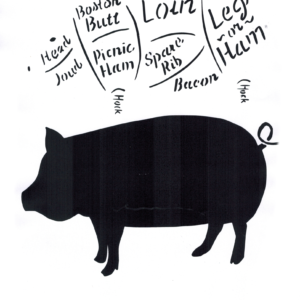 Head
Jowl
Boston
Butt
Picnic
Ham
Loin
Spare
Rib
Bacon
Leg
or
Ham
(Hock
(Hock